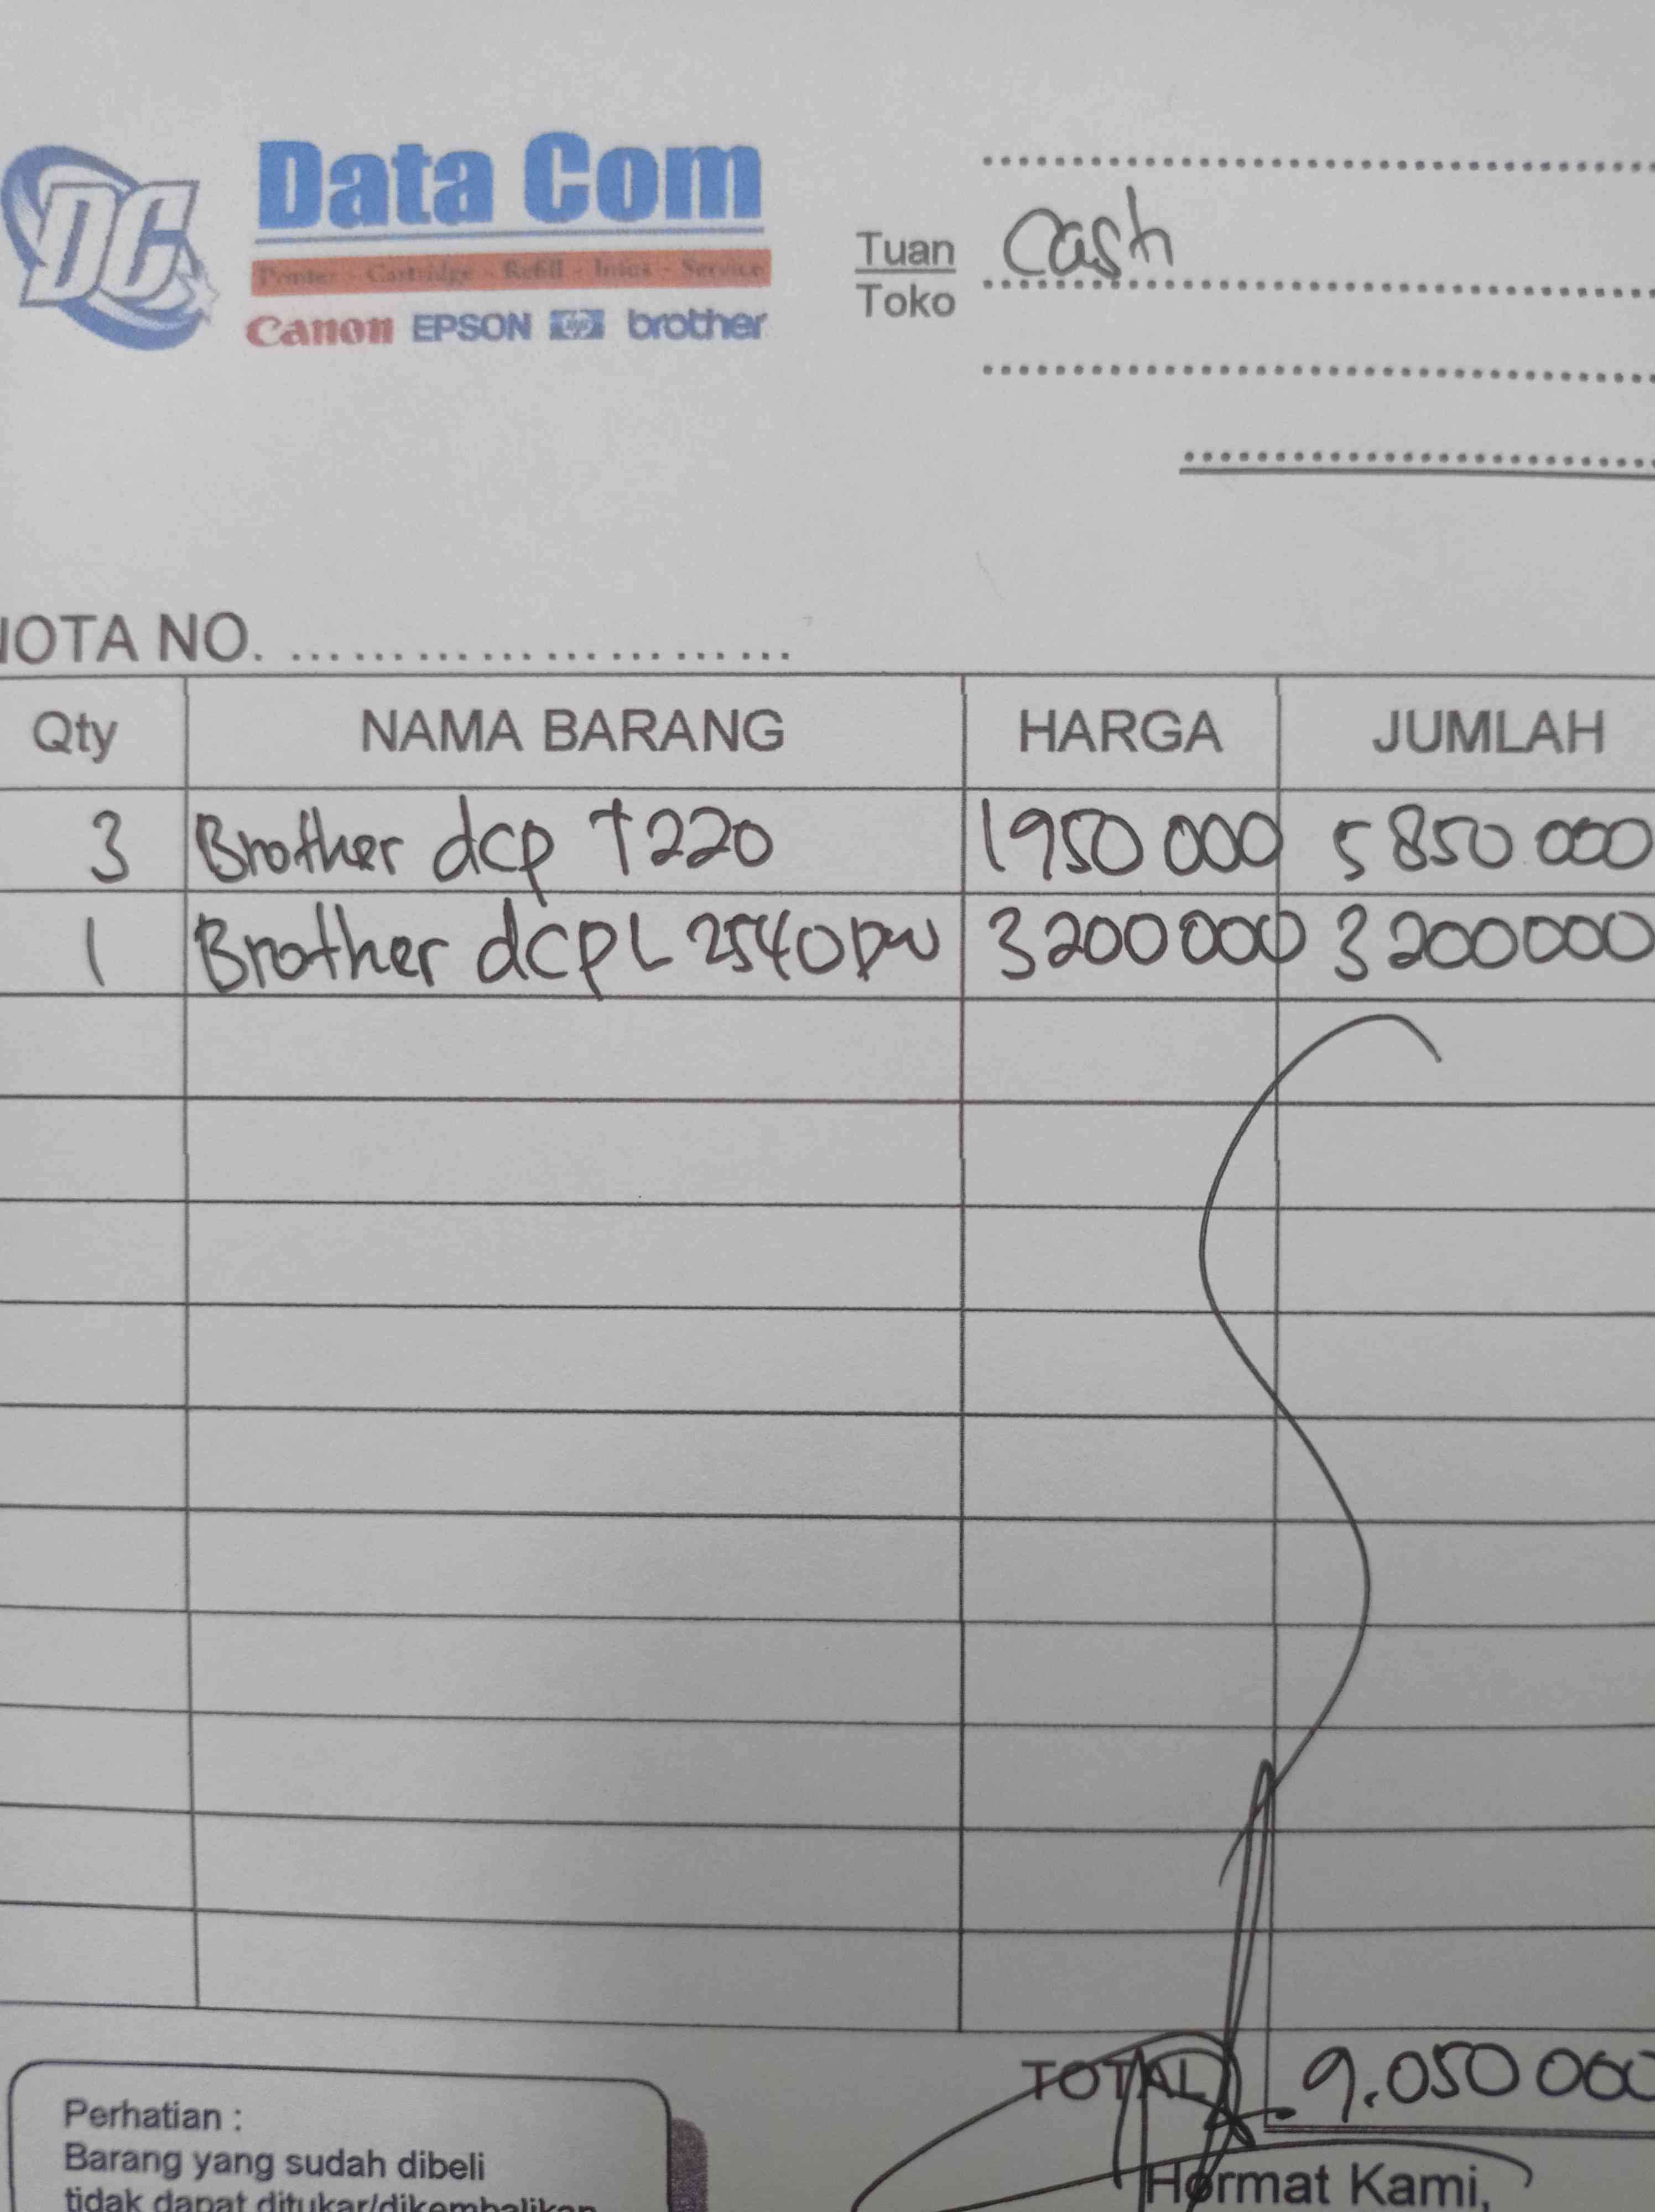 DC
Data Com
Printer - Cartridge - Refill - Infus - Service
Canon EPSON hp brother
Tuan Cash
Toko
NOTA NO.
Qty NAMA BARANG HARGA JUMLAH
3 Brother dcp T220 1950 000 5 850 000
1 Brother dcp L 2540 DW 3 200 000 3 200 000
TOTAL 9.050 000
Perhatian :
Barang yang sudah dibeli
tidak dapat ditukar/dikembalikan
Hormat Kami,